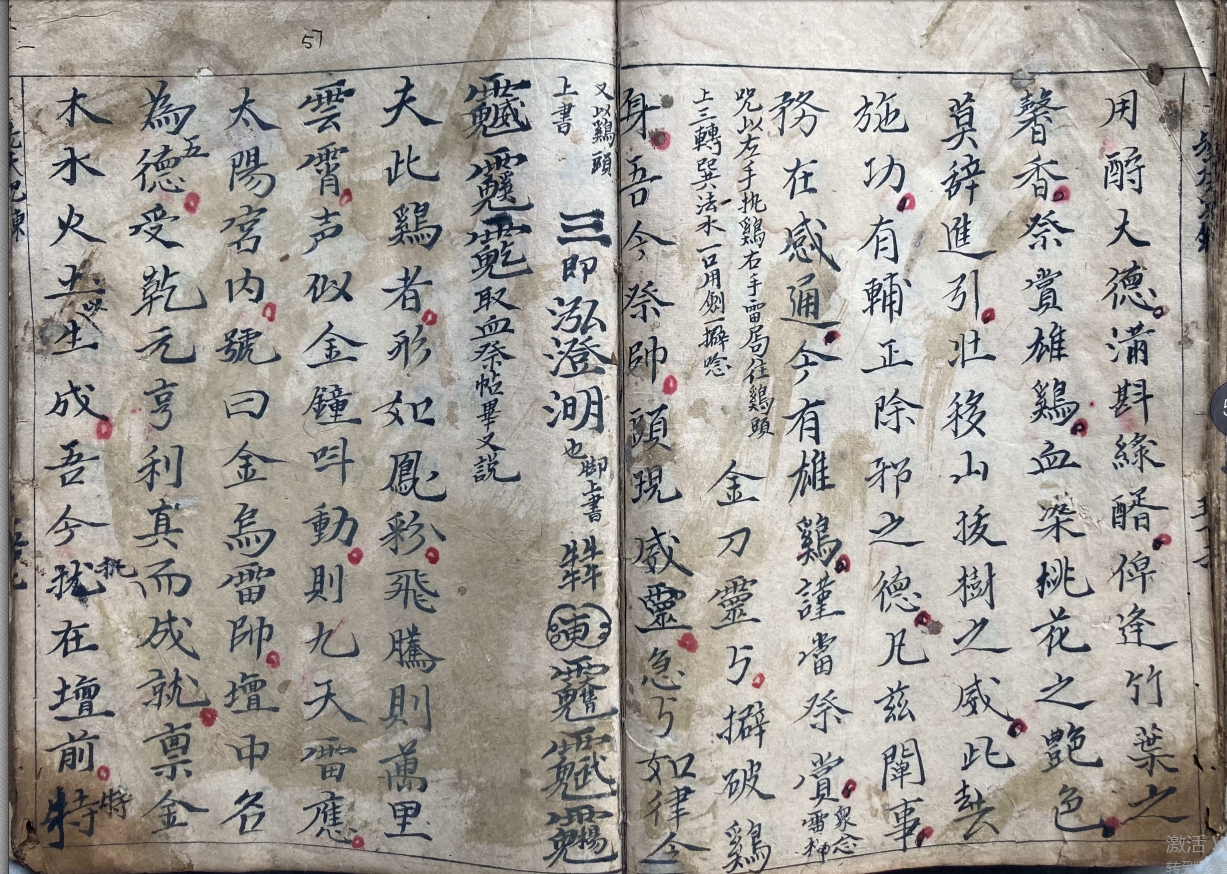 用酹大德滿斟綠醑俾逢竹葉之
馨香祭賞雄鷄血染桃花之艷色
莫辞進引壯移山拔樹之威此
施功有輔正除邪之德凡茲闡事
務在感通今有雄鷄謹當祭賞衆念雷神
咒以左手执鷄右手雷局住鷄頭
上三轉巽法水一口用劍一擗唸
金刀靈丂擗破鷄
身吾今祭帥頭現威靈急丂如律令
又以鷄頭
上書
三即泓澄
也脚上書
取血祭帖畢又説
夫此鷄者形如鳳彩飛騰則萬里
雲霄声似金鐘呌動則九天雷應
太陽宮內號曰金烏雷帥壇中名
為五德受乾元亨利真而成就禀金
木水火土以生成吾今执在壇前特
57
激活